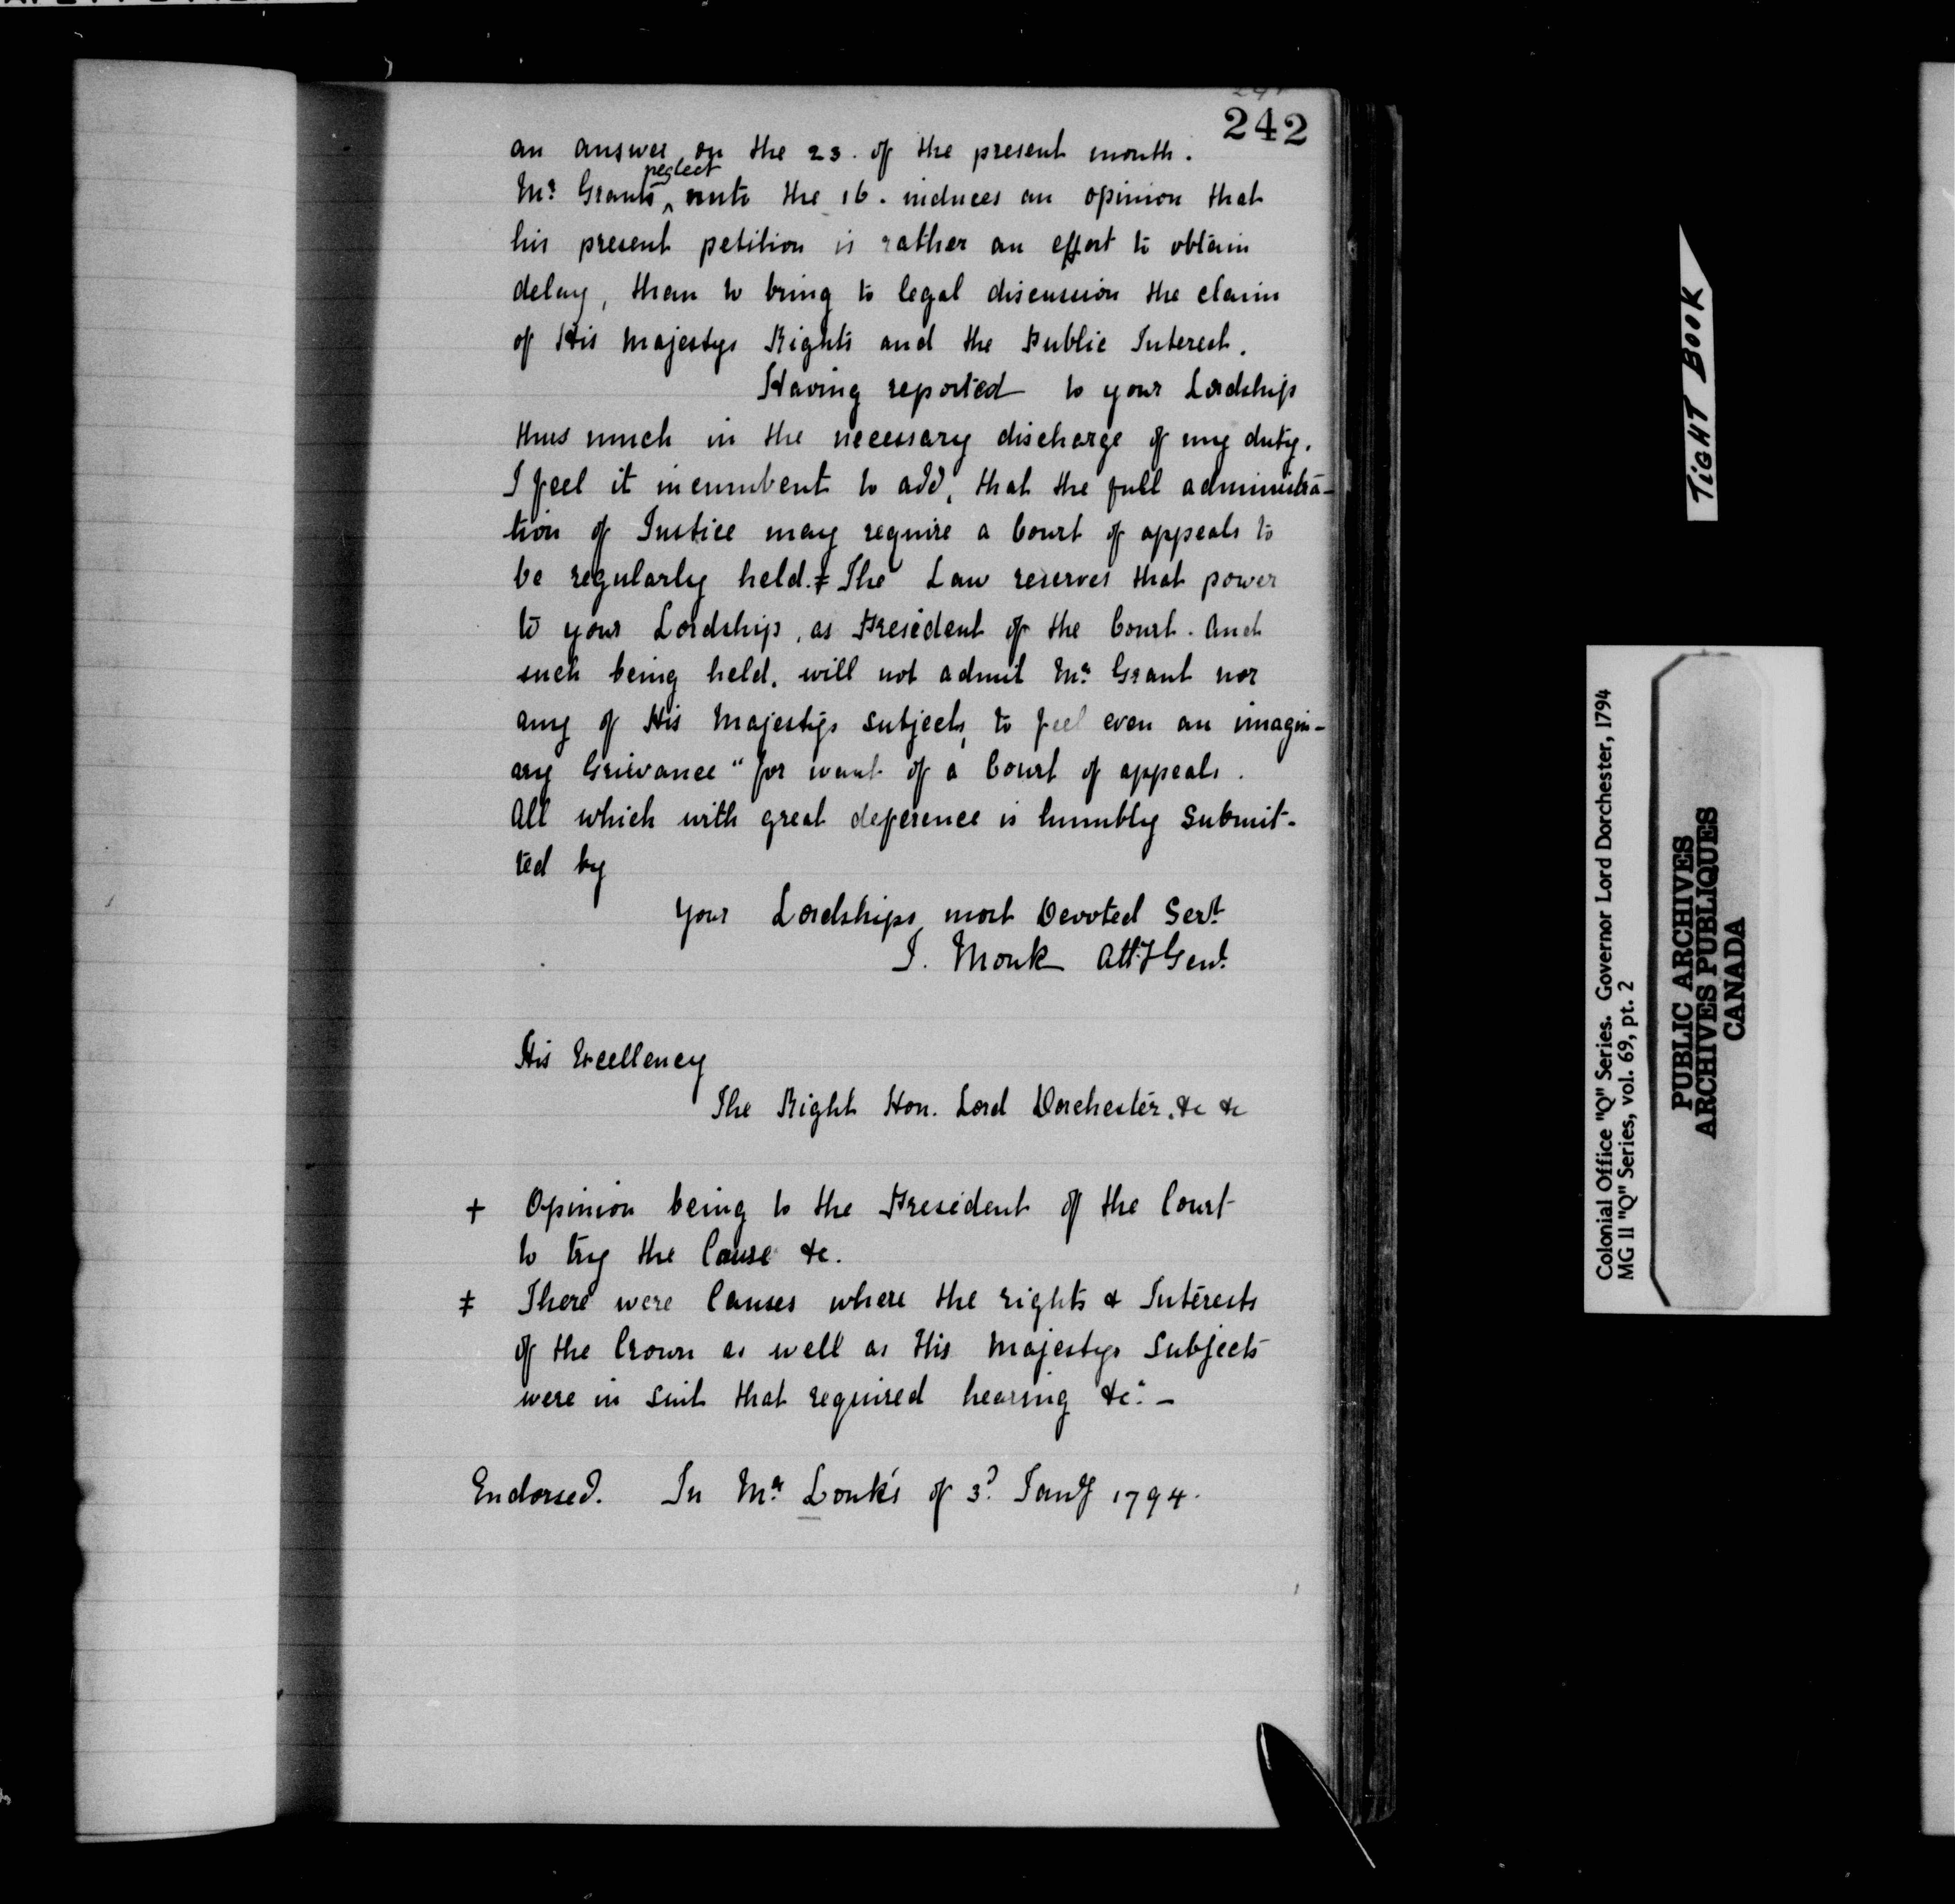 242
an answer on the 23. of the present month.
neglect
Mr. Grants ^ unto the 16. induces an opinion that
his present petition is rather an effort to obtain
delay, than to bring to legal discussion the claim
of His Majestys Rights and the Public Interest.
Having reported to your Lordship
thus much in the necessary discharge of my duty.
I feel it incumbent to add, that the full administra-
tion of Justice may require a Court of appeals to
be regularly held.‡ The Law reserves that power
to your Lordship, as President of the Court. And
such being held, will not admit Mr. Grant nor
any of His Majestys subjects, to feel even an imagin-
ary Grievance "for want of a Court of appeals.
All which with great deference is humbly submit-
ted by
Your Lordships most Devoted Servt.
J. Monk Atty Genl.
His Excellency
The Right Hon. Lord Dorchester, &c &c
+ Opinion being to the President of the Court
to try the Cause &c.
‡ There were Causes where the rights & Interests
of the Crown as well as His Majestys Subjects
were in suit that required hearing &c. -
Endorsed. In Mr. Lonk's of 3d. Jany 1794.
TIGHT BOOK
Colonial Office "Q" Series. Governor Lord Dorchester, 1794
MG 11 "Q" Series, vol. 69, pt. 2
PUBLIC ARCHIVES
ARCHIVES PUBLIQUES
CANADA